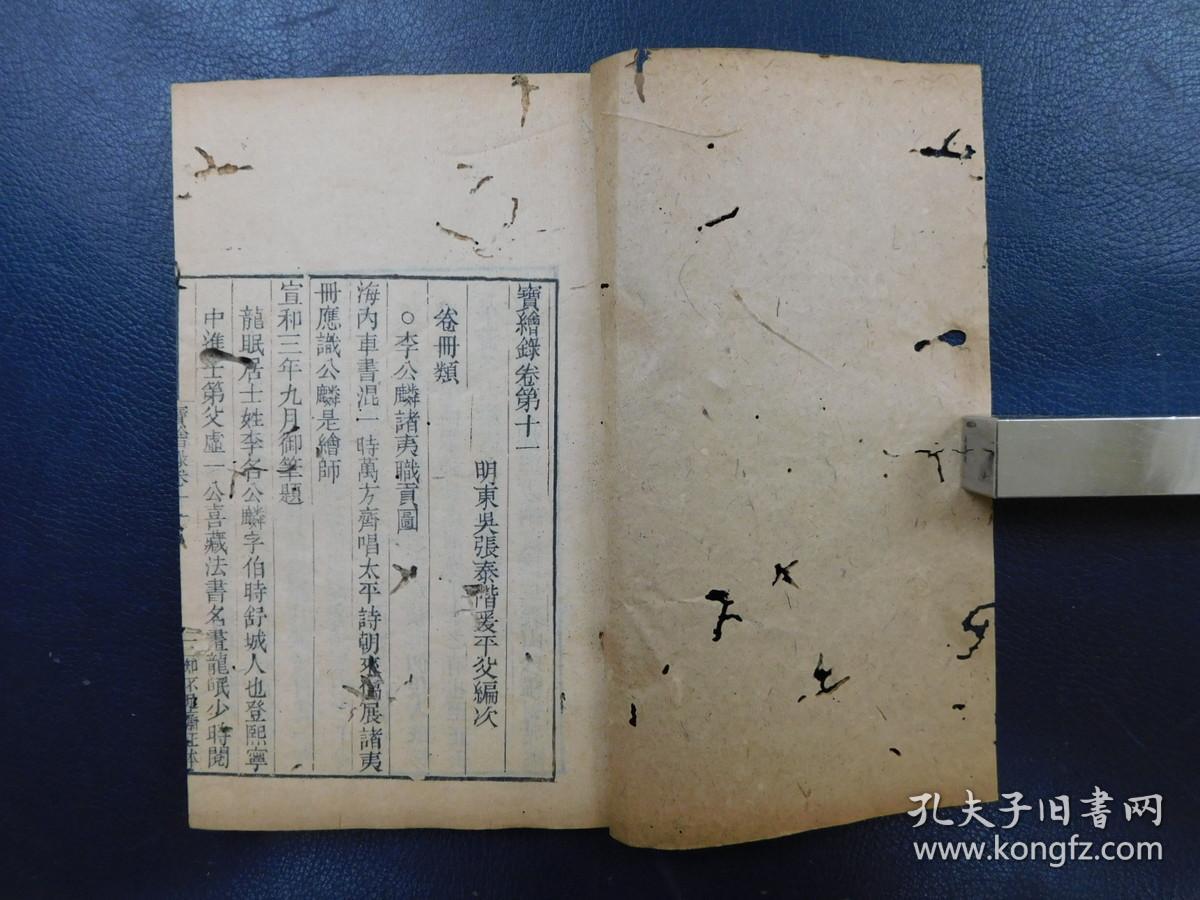 寶繪錄卷第十一
明東吳張泰階爰平父編次
卷冊類
○李公麟諸夷職貢圖
海內車書混一時萬方齊唱太平詩朝來獨展諸夷
冊應識公麟是繪師
宣和三年九月御筆題
龍眠居士姓李名公麟字伯時舒城人也登熙寧
中進士第父虛一公喜藏法書名畫龍眠少時閱
寶繪錄卷十一
一
知不足齋正本
孔夫子旧书网
www.kongfz.com